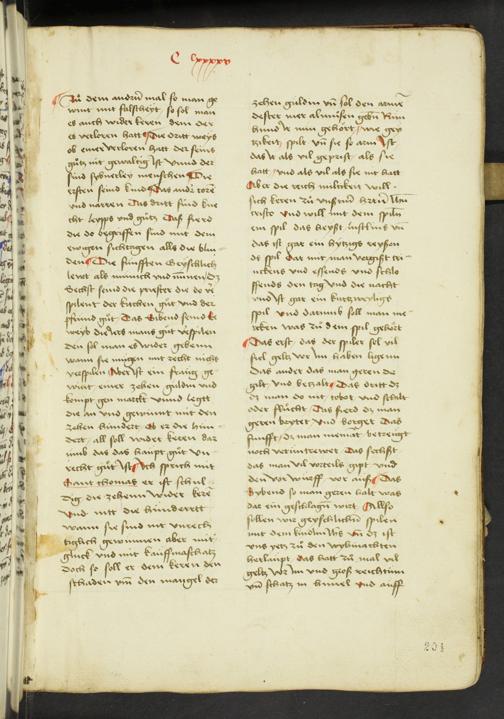 C lxxxxv
Zu dem andern mal so man ge
wint mit falscheyt so sol man
es auch wider keren dem der
es verloren hatt Die dritt weys
ob einer verloren hatt der seins
gutz nit gewaltig ist Unnd der
sind sybnerley menschen Die
ersten seind kind Das ander toren
und narren Das dritt sind kne
cht leypps und gutz Das fierd
die do begriffen sind mit dem
ewigen siechtagen alls die blin
den Die funfften geyschlich
lewt als münnich und nunnen Die
Sechst seind die priester die do ver
spilent der kirchen gut und der
pfrund gut Das Sibend seind
weyb die irs mans gut verspilen
den sol man es wider geben
wann sie mugen mit recht nicht
verspilen Aber ist ein fraug ge
wint einer zehen guldin und
kompt gen marckt unnd legtt
die an und gewinnt mit den
zehen hundert ob er die hun
dert all soll wider keren dar
umb das das haupt gut un
recht gut ist Ich sprich mit
Sant thomas er ist schul
dig die zehenn wider keren
Und nitt die hunderett
wann sie sind mit unrech
tiglich gewunnen aber mit
gluck und mit kauffmaschatz
Doch so soll er dem keren den
schaden umb den mangel der
zehen guldin und sol den armen
dester mer almusen geben Nun
hand ir nun gehort wie gey
tzikeit spilt und sie so arm ist
das ir als vil geprist als sie
hatt und als vil als sie nit hatt
Aber die reich miltikeit will
sich keren zu unserm herren
cristo und will mit dem spiln
ein spil das heyst
das ist gar ein hytzigs
spil Dar mit man vergist tri
nckens und essens und schlo
ffends den tag und die nacht
und ist gar ein kurtzweyligs
spil und darumb soll man me
rcken was zu dem spil gehort
Das erst das der spiler sol vil
geltz vor im haben ligenn
Das ander das man geren de
gilt und betzalt Das dritt das
man do nit tobet und schilt
oder flucht Das fierd das man
geren beytet und borget Das
funfft das man niemat betreugt
noch veruntrewet Das sechst
das man vil vorteils gipt und
den vor wurff vor auß Das
Sybend so man geren halt was
dar ein geschlagen wirt Allso
sollen wir geyschlichen spilen
mit dem kindlin Und das ist
uns yetz zu den wyhnachten
herlaupt das hatt zu mal vil
geltz vor im und groß reichtum
und schatz in himel und auff
204